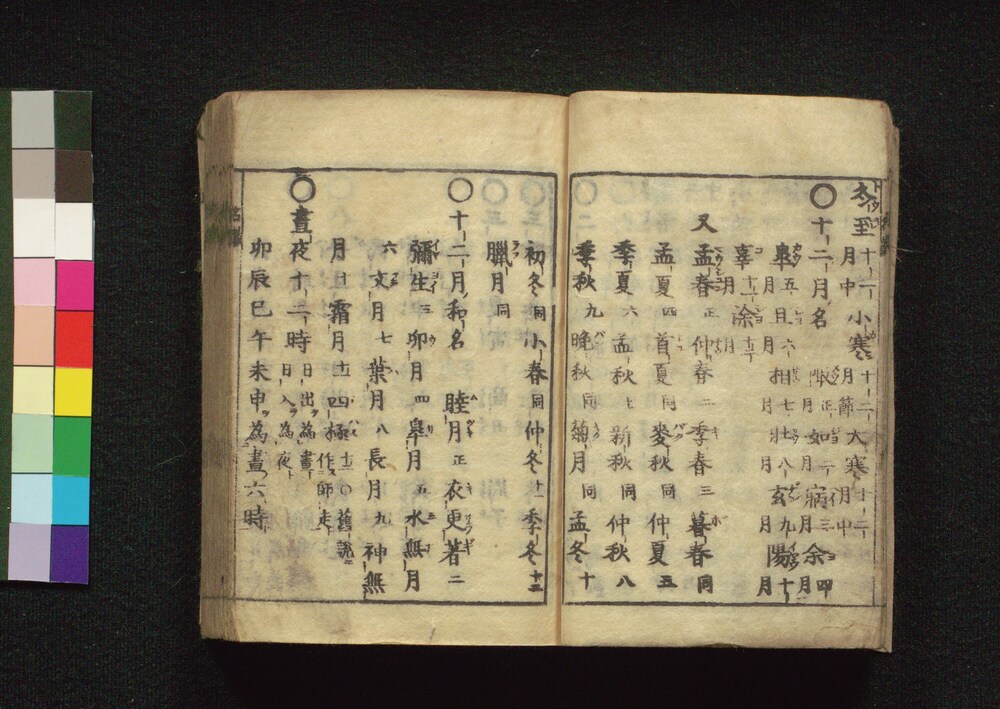 冬至十一月中 小寒十二月節 大寒十二月中
〇十二月名 陬正月 如二月 寎三月 余四月
皐五月 且六月 相七月 壮八月 玄九月 陽十月
辜十一月 涂十二月
又 孟春正 仲春二 季春三 暮春同
孟夏四 首夏同 麥秋同 仲夏五
季夏六 孟秋七 新秋同 仲秋八
季秋九 晩秋同 菊月同 孟冬十
初冬同 小春同 仲冬十一 季冬十二
臘月同
〇十二月和名 睦月正 衣更著二
彌生三 卯月四 皐月五 水無月
六 文月七 葉月八 長月九 神無
月十 霜月十一 四極十二〇舊説ニ作師走
〇晝夜十二時 日出為晝日入為夜
卯辰巳午未申為晝六時